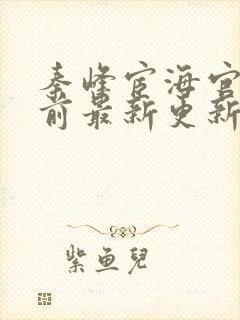 秦峰宦海官
前最新更新
紫鱼儿